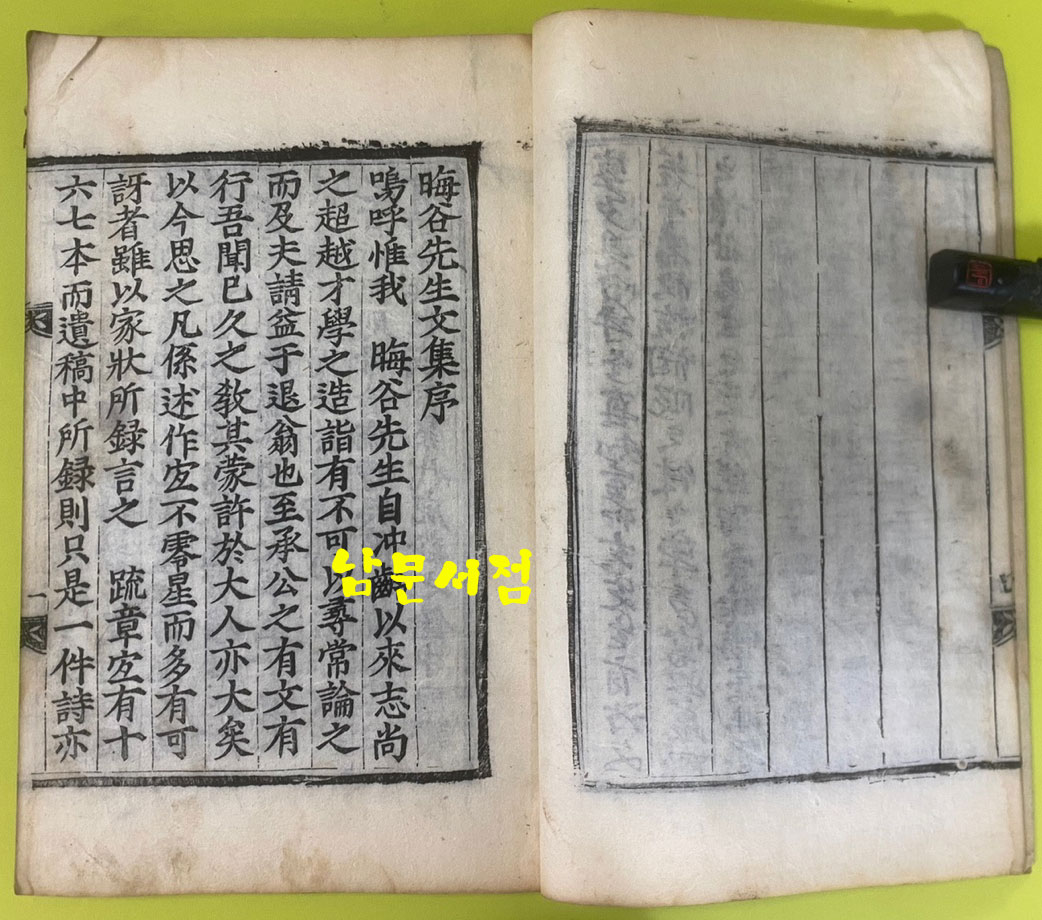 晦谷先生文集序
嗚呼惟我 晦谷先生自冲齠以來志尚
之超越才學之造詣有不可以尋常論之
而及夫請益于退翁也至承公之有文有
行吾聞已久之敎其蒙許於大人亦大矣
以今思之凡係述作宜不零星而多有可
訝者雖以家狀所録言之 䟽章宜有十
六七本而遺稿中所録則只是一件詩亦
一
남문서점